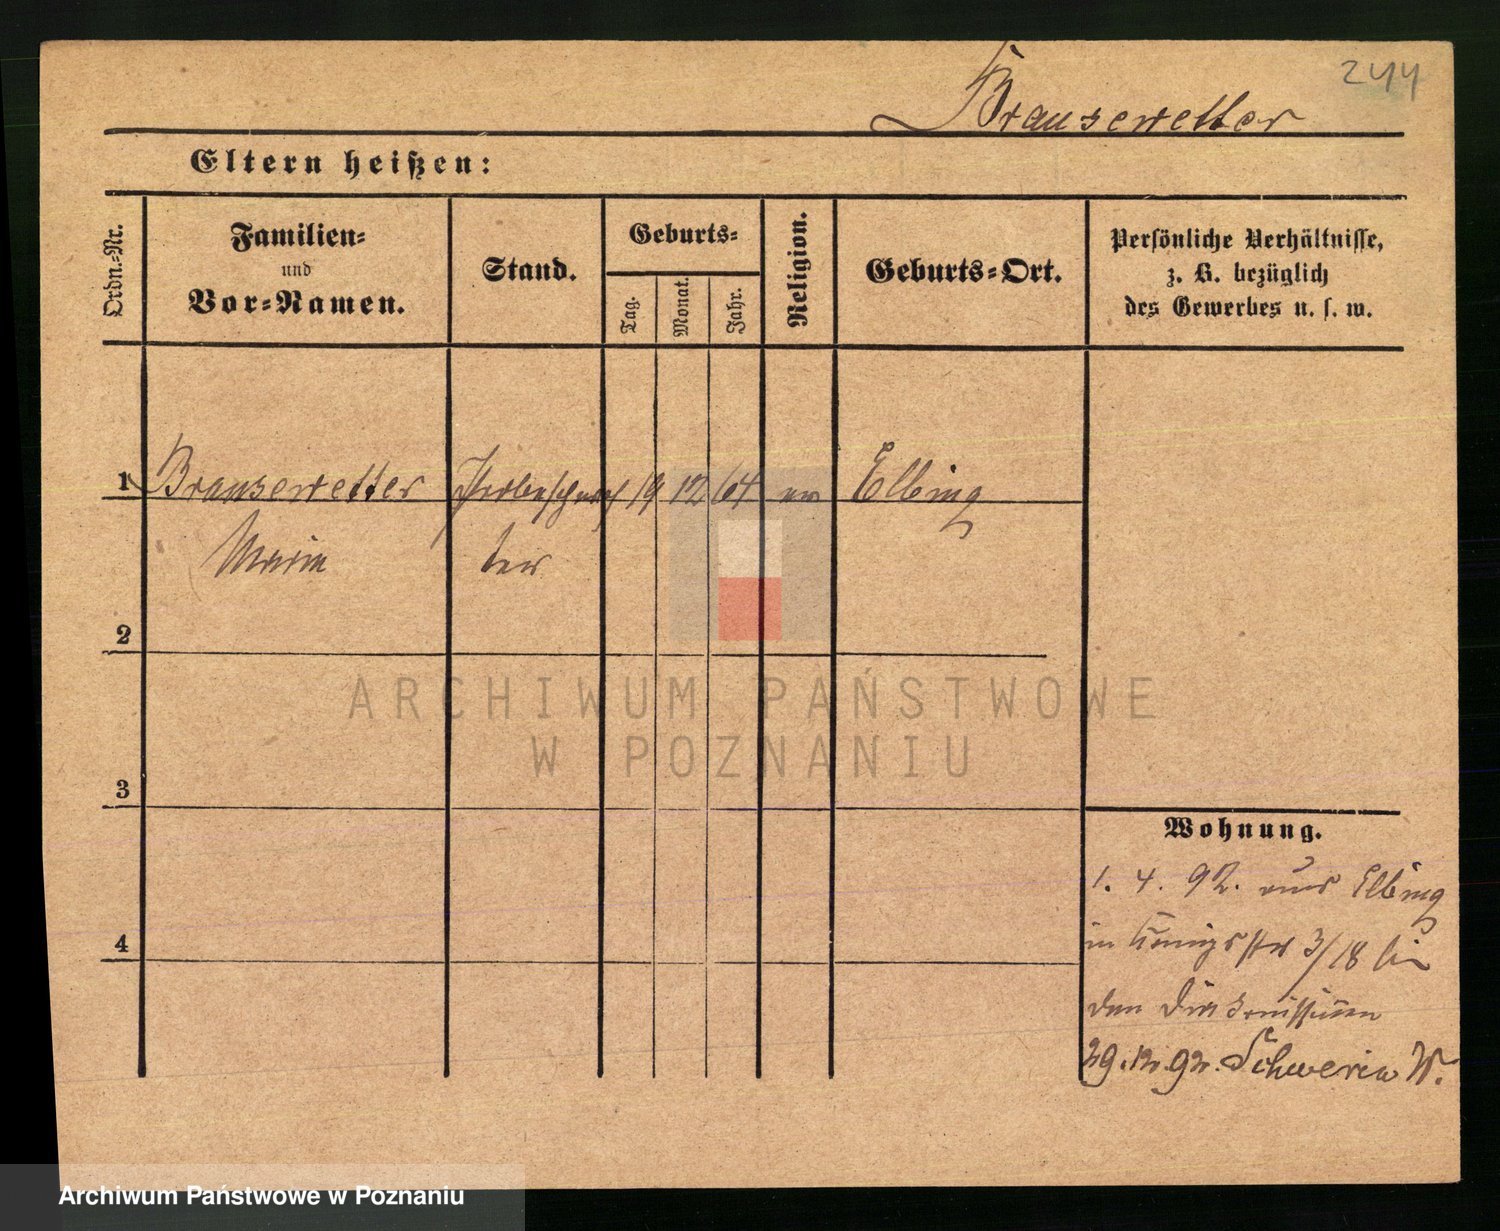 244
Brausewetter
Eltern heißen:
Ordn.-Nr.
Familien-
und
Vor-Namen.
Stand.
Geburts-
Tag.
Monat.
Jahr.
Religion.
Geburts-Ort.
Persönliche Verhältnisse,
z. B. bezüglich
des Gewerbes u. s. w.
1 Brausewetter 19 12 64 ev Elbing
Maria ter
2
3
4
Wohnung.
1. 4. 92. aus Elbing
in Königsstr 3/18 bei
den Diakonissinnen
29.12.92. Schwerin W.
ARCHIWUM PAŃSTWOWE
W POZNANIU
Archiwum Państwowe w Poznaniu